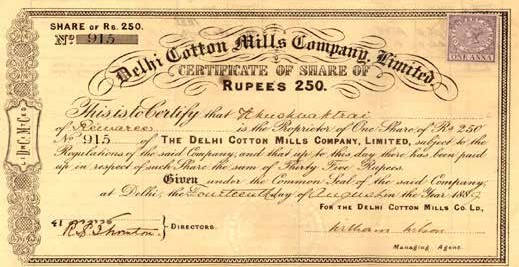 SHARE OF RS. 250.
No. 915
Delhi Cotton Mills Company, Limited.
CERTIFICATE OF SHARE OF
RUPEES 250.
ONE ANNA
D.C.M.Co.
This is to Certify that
of Rewaree is the Proprietor of One Share of Rs 250
No 915 of THE DELHI COTTON MILLS COMPANY, LIMITED, subject to the
Regulations of the said Company, and that up to this day there has been paid
up in respect of such Share the sum of Thirty Five Rupees.
Given under the Common Seal of the said Company,
at Delhi, the Fourteenth day of August in the Year 188
FOR THE DELHI COTTON MILLS CO LD,
DIRECTORS.
Managing Agent.